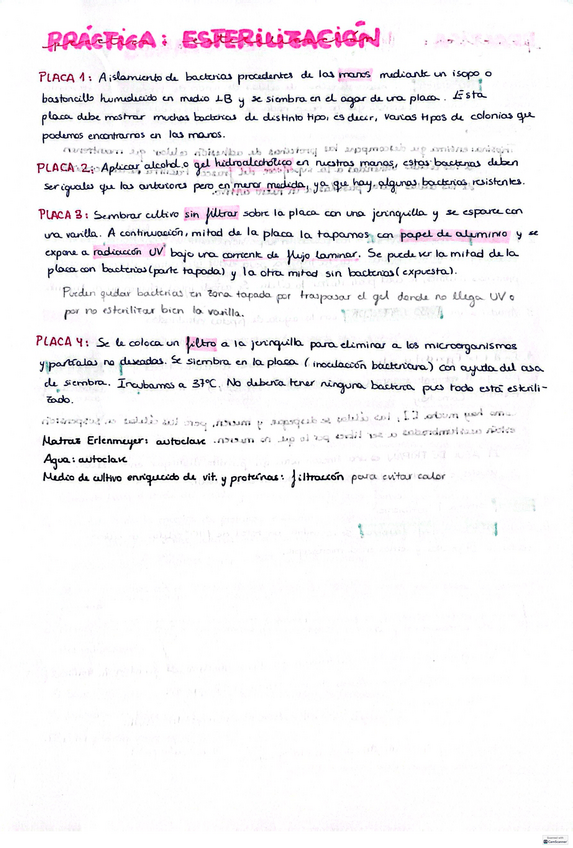 PRÁCTICA: ESTERILIZACIÓN
PLACA 1: Aislamiento de bacterias procedentes de las manos mediante un isopo o
bastoncillo humedecido en medio LB y se siembra en el agar de una placa. Esta
placa debe mostrar muchas bacterias de distinto tipo, es decir, varios tipos de colonias que
podemos encontrarnos en las manos.
PLACA 2: Aplicar alcohol o gel hidroalcohólico en nuestras manos, estas bacterias deben
ser iguales que las anteriores pero en menor medida, ya que hay algunas bacterias resistentes.
PLACA 3: Sembrar cultivo sin filtrar sobre la placa con una jeringuilla y se esparce con
una varilla. A continuación, mitad de la placa la tapamos con papel de aluminio y se
expone a radiación UV bajo una corriente de flujo laminar. Se puede ver la mitad de la
placa con bacterias (parte tapada) y la otra mitad sin bacterias (expuesta).
Pueden quedar bacterias en zona tapada por traspasar el gel donde no llega UV o
por no esterilizar bien la varilla.
PLACA 4: Se le coloca un filtro a la jeringuilla para eliminar a los microorganismos
y partículas no deseadas. Se siembra en la placa (inoculación bacteriana) con ayuda del asa
de siembra. Incubamos a 37ºC. No debería tener ninguna bacteria pues todo está esterili-
zado.
Matraz Erlenmeyer: autoclave
Agua: autoclave
Medio de cultivo enriquecido de vit. y proteínas: filtración para evitar calor
CamScanner